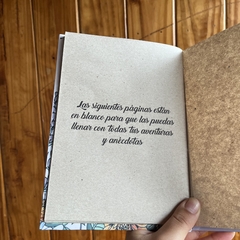 Las siguientes páginas están
en blanco para que las puedas
llenar con todas tus aventuras
y anécdotas